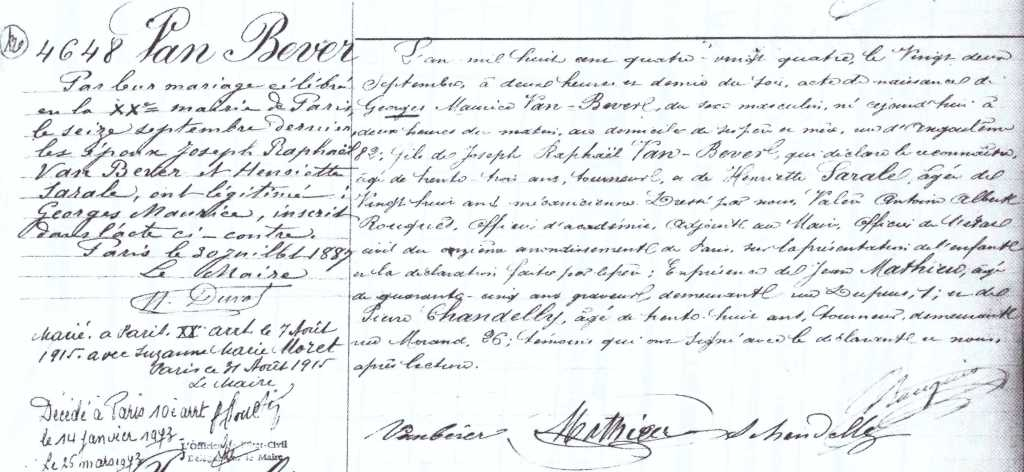 4648 Van Bever
Par leur mariage célébré
en la XXme mairie de Paris,
le seize septembre dernier,
les époux Joseph Raphaël
Van Bever et Henriette
Sarale, ont légitimé :
Georges Maurice, inscrit
dans l'acte ci-contre.
Paris le 30 juillet 1887
Le Maire
Marié. à Paris. XXe arrt le 7 Août
1915. avec Suzanne Marie Moret
Paris ce 31 Août 1915
Le Maire
Décédé à Paris 10è arrt
le 14 janvier 1973
Le 25 mars 1973
L'Officier Etat-Civil
le Maire
L'an mil huit cent quatre-vingt quatre, le Vingt deux
Septembre, à deux heures et demie du soir, acte de naissance de
Georges Maurice Van-Bever, du sexe masculin, né cejourd'hui à
deux heures du matin, au domicile de ses père et mère, rue d'Angoulême
82; fils de Joseph Raphaël Van-Bever, qui déclare le reconnaître,
âgé de trente-trois ans, tourneur, et de Henriette Sarale, âgée de
Vingt huit ans mécanicienne. Dressé par nous, Valéry Antoine Albert
Rouquès, officier d'académie, adjoint au Maire, officier de l'état
civil du onzième arrondissement de Paris, sur la présentation de l'enfant
et la déclaration faites par le père; En présence de Jean Mathieu, âgé
de quarante-cinq ans graveur, demeurant rue Dupuis, 1; et de
Pierre Chandelly, âgé de trente huit ans, tourneur, demeurant
rue Morand, 26; témoins qui ont signé avec le déclarant et nous,
après lecture.
Vanbever Mathieu Chandelly Rouquès